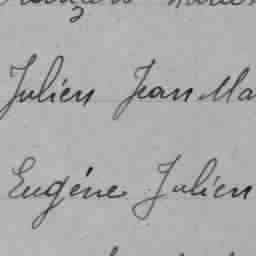 Julien Jean Ma
Eugène Julien